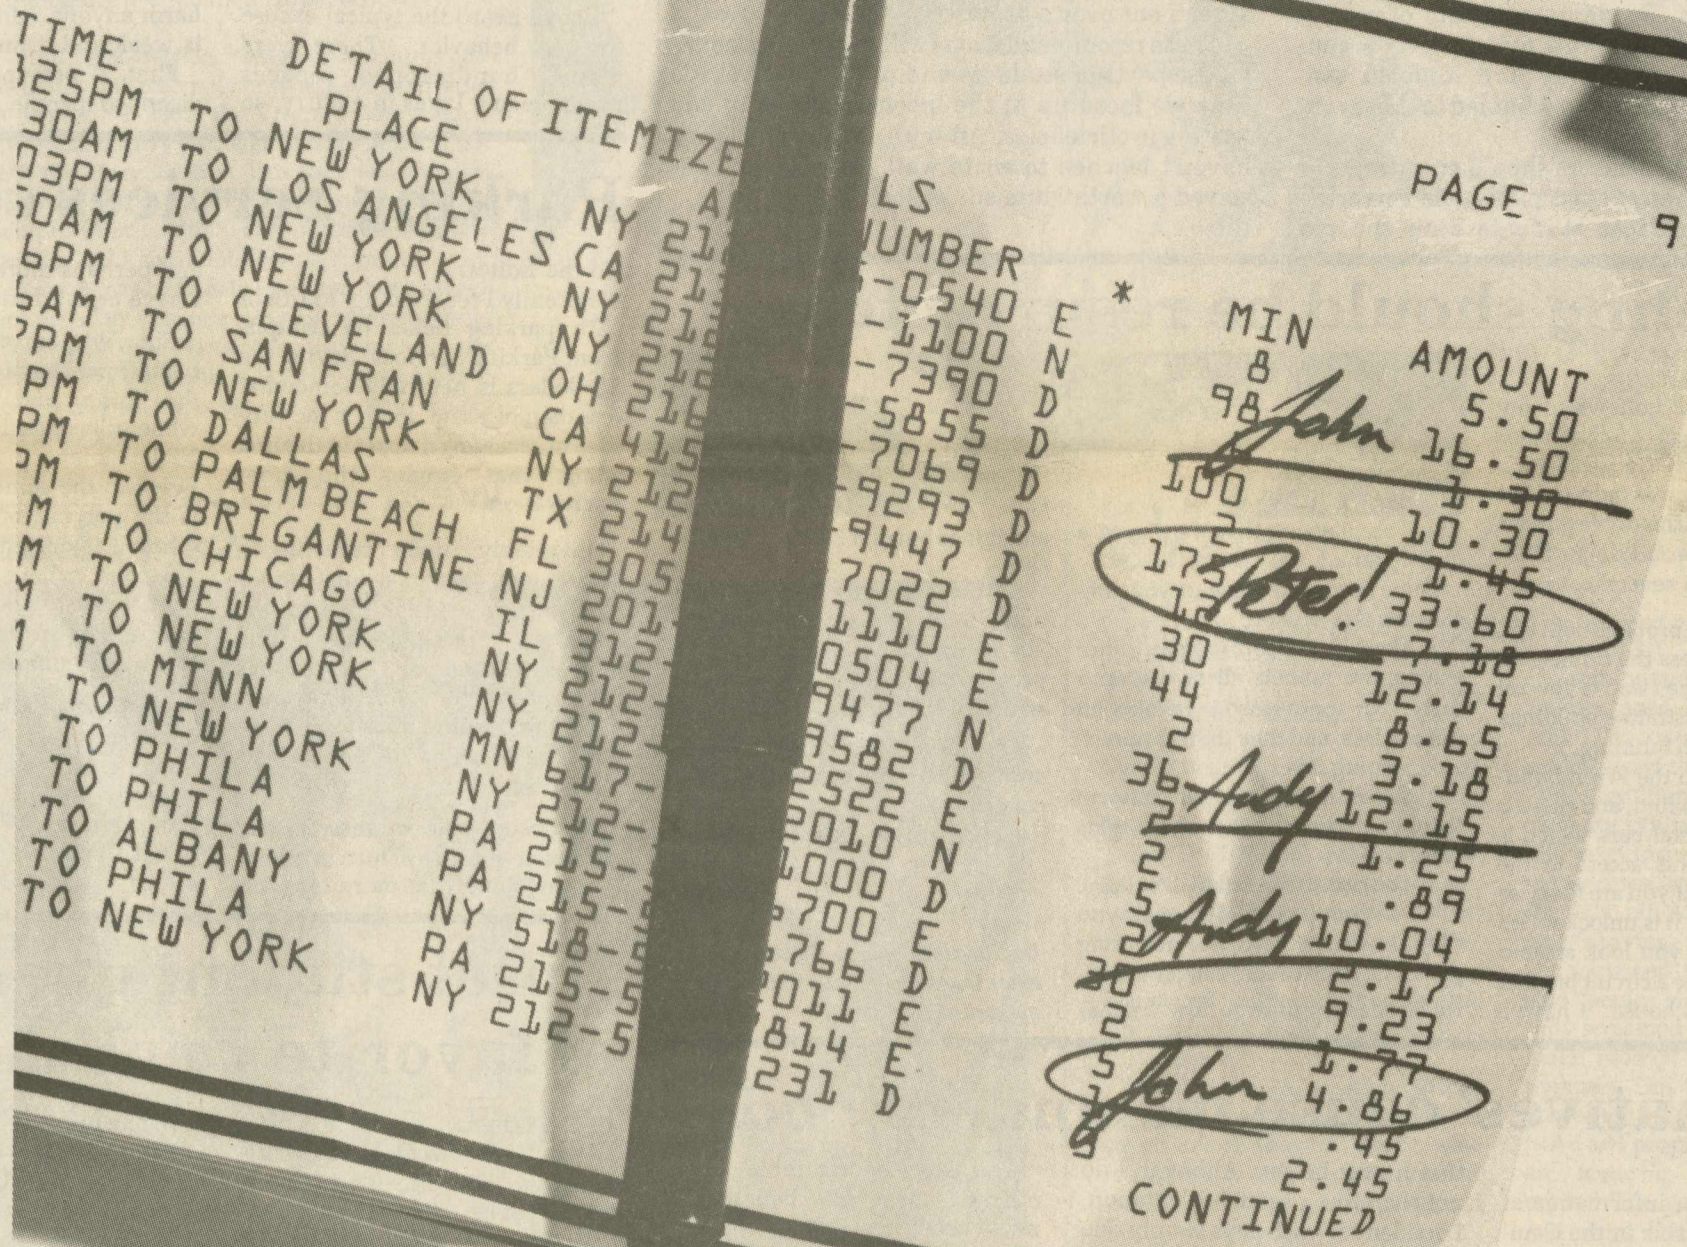 DETAIL OF ITEMIZE LS PAGE 9
TIME PLACE NUMBER * MIN AMOUNT
25PM TO NEW YORK NY 212 -0540 E 8 5.50
30AM TO LOS ANGELES CA 213 -1100 N 98 John 16.50
03PM TO NEW YORK NY 212 -7390 D 1.30
50AM TO NEW YORK NY 212 -5855 D 100 10.30
6PM TO CLEVELAND OH 216 -7069 D 2 1.45
AM TO SAN FRAN CA 415 -9293 D 175 Peter! 33.60
PM TO NEW YORK NY 212 -9447 D 12 7.18
PM TO DALLAS TX 214 7022 D 30 12.14
PM TO PALM BEACH FL 305 1110 E 44 8.65
PM TO BRIGANTINE NJ 201 0504 E 2 3.18
M TO CHICAGO IL 312 9477 N 36 Andy 12.15
M TO NEW YORK NY 212 9582 D 2 1.25
M TO NEW YORK NY 212- 2522 E 2 .89
TO MINN MN 617- 2010 N 5 Andy 10.04
TO NEW YORK NY 212- 1000 D 2 2.17
TO PHILA PA 215- 700 E 30 9.23
TO PHILA PA 215- 766 D 2 1.77
TO ALBANY NY 518- 011 E 5 John 4.86
TO PHILA PA 215-5 814 E .45
TO NEW YORK NY 212-5 231 D 2.45
CONTINUED